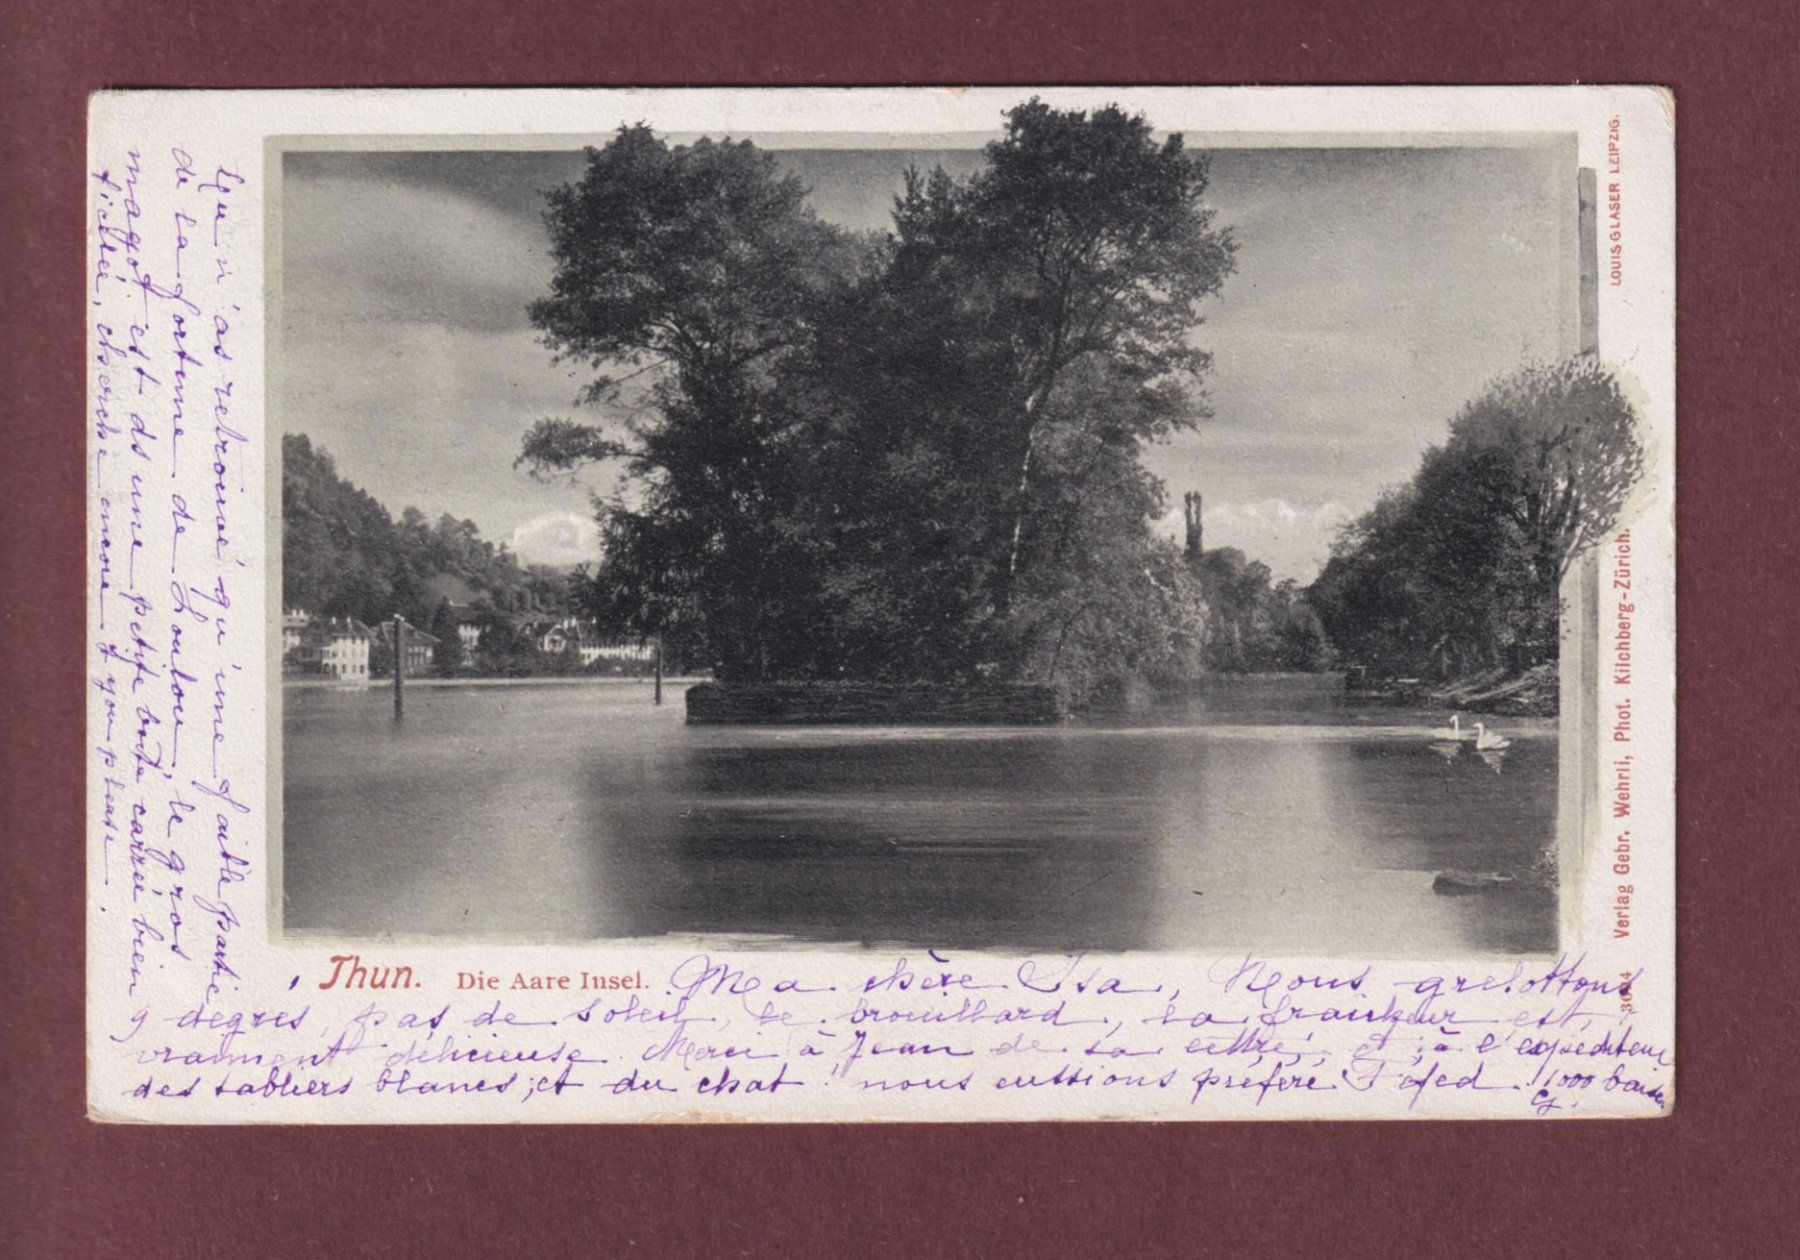 Thun. Die Aare Insel. Ma chère Isa, Nous grelottons
9 degres, pas de soleil, le brouillard, la fraicheur est
vraiment délicieuse. Merci à Jean de sa lettre, et à l'expéditeur
des tabliers blancs, et du chat! nous eussions préféré 1000 baisers
Tu n'as retrouvé qu'une faible partie
de la fortune de Loulou, le gros
magot est ds une petite boîte carrée bien
ficelée, cherche encore if you please.
LOUIS GLASER LEIPZIG.
Verlag Gebr. Wehrli, Phot. Kilchberg-Zürich.